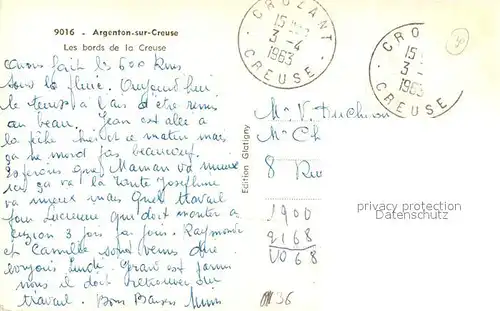 9016 - Argenton-sur-Creuse
Les bords de la Creuse
avons fait les 600 kms
sous la pluie. Aujourd'hui
le temps a l'air d'etre remis
au beau. Jean est allé a
la pêche hier et ce matin mais
ça ne mord pas beaucoup.
Esperons que Maman va mieux
ici ça va la Tante Josephine
va mieux mais quel travail
pour Lucienne qui doit monter a
3 fois par jour. Raymonde
et Camille sont venus dire
bonjour Lundi. Gérard est parmi
nous il doit retrouver du
travail. Bons Baisers
CROZANT
15
3 - 4
1963
CREUSE
CRO
15
3 -
1963
CREUSE
Edition Glatigny
Mr V.
Mr Ch
8 Rue
1900
2168
4068
36
privacy protection
Datenschutz